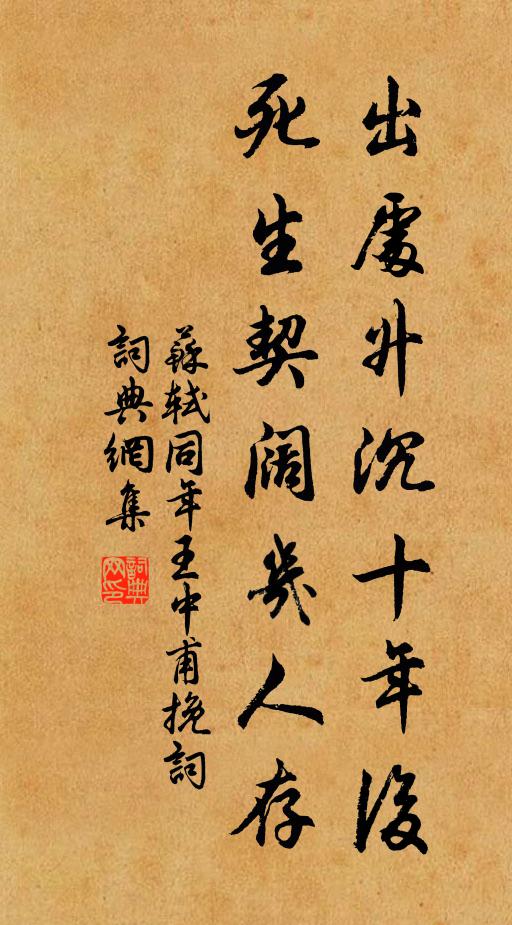 出處升沉十年後
死生契闊幾人存
蘇軾同年王中甫挽詞
詞典網集
詞典网印